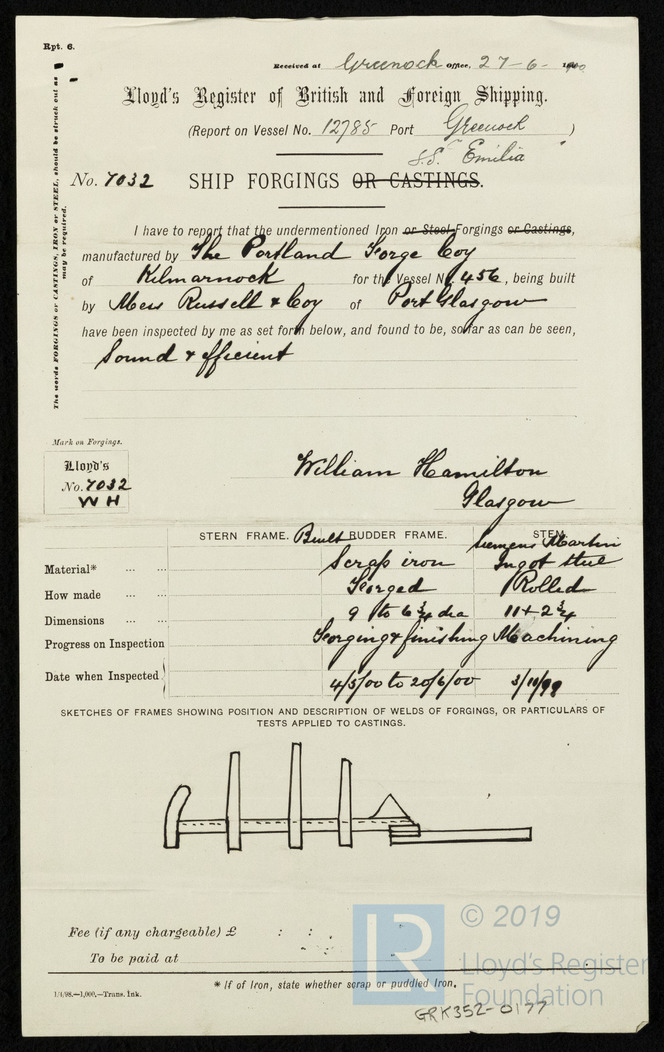 Rpt. 6.
Received at Greenock Office, 27-6-1900
Lloyd's Register of British and Foreign Shipping.
(Report on Vessel No. 12785 Port Greenock )
S.S. Emilia
No. 7032 SHIP FORGINGS OR CASTINGS.
The words FORGINGS or CASTINGS, IRON or STEEL, should be struck out as may be required.
I have to report that the undermentioned Iron or Steel Forgings or Castings,
manufactured by The Portland Forge Coy
of Kilmarnock for the Vessel No 456, being built
by Mess Russell & Coy of Port Glasgow
have been inspected by me as set forth below, and found to be, so far as can be seen,
Sound & efficient
Mark on Forgings.
Lloyd's
No. 7032
W H
William Hamilton
Glasgow
STERN FRAME. Built RUDDER FRAME. STEM
Siemens Martin
Material* ... ... Scrap iron Ingot steel
How made ... ... Forged Rolled
Dimensions ... ... 9 to 6 3/4 dia 11 + 2 3/4
Progress on Inspection Forging & finishing Machining
Date when Inspected 4/5/00 to 20/6/00 3/10/99
SKETCHES OF FRAMES SHOWING POSITION AND DESCRIPTION OF WELDS OF FORGINGS, OR PARTICULARS OF
TESTS APPLIED TO CASTINGS.
Fee (if any chargeable) £ : :
To be paid at
* If of Iron, state whether scrap or puddled Iron.
1/4/98.—1,000,—Trans. Ink.
LR
© 2019
Lloyd's Register
Foundation
GRK352-0177